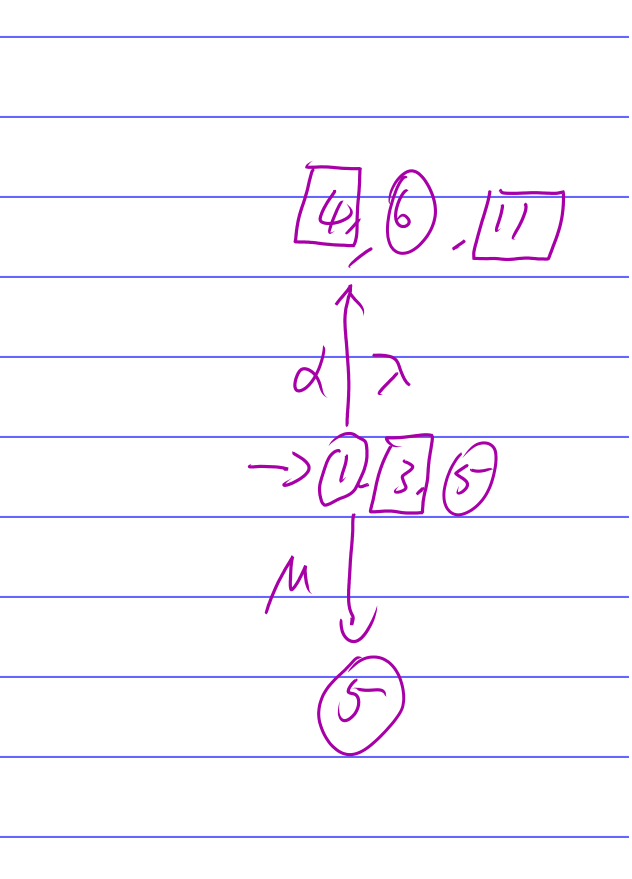 4, 6, 11
α λ
→ 1, 3, 5
μ
5